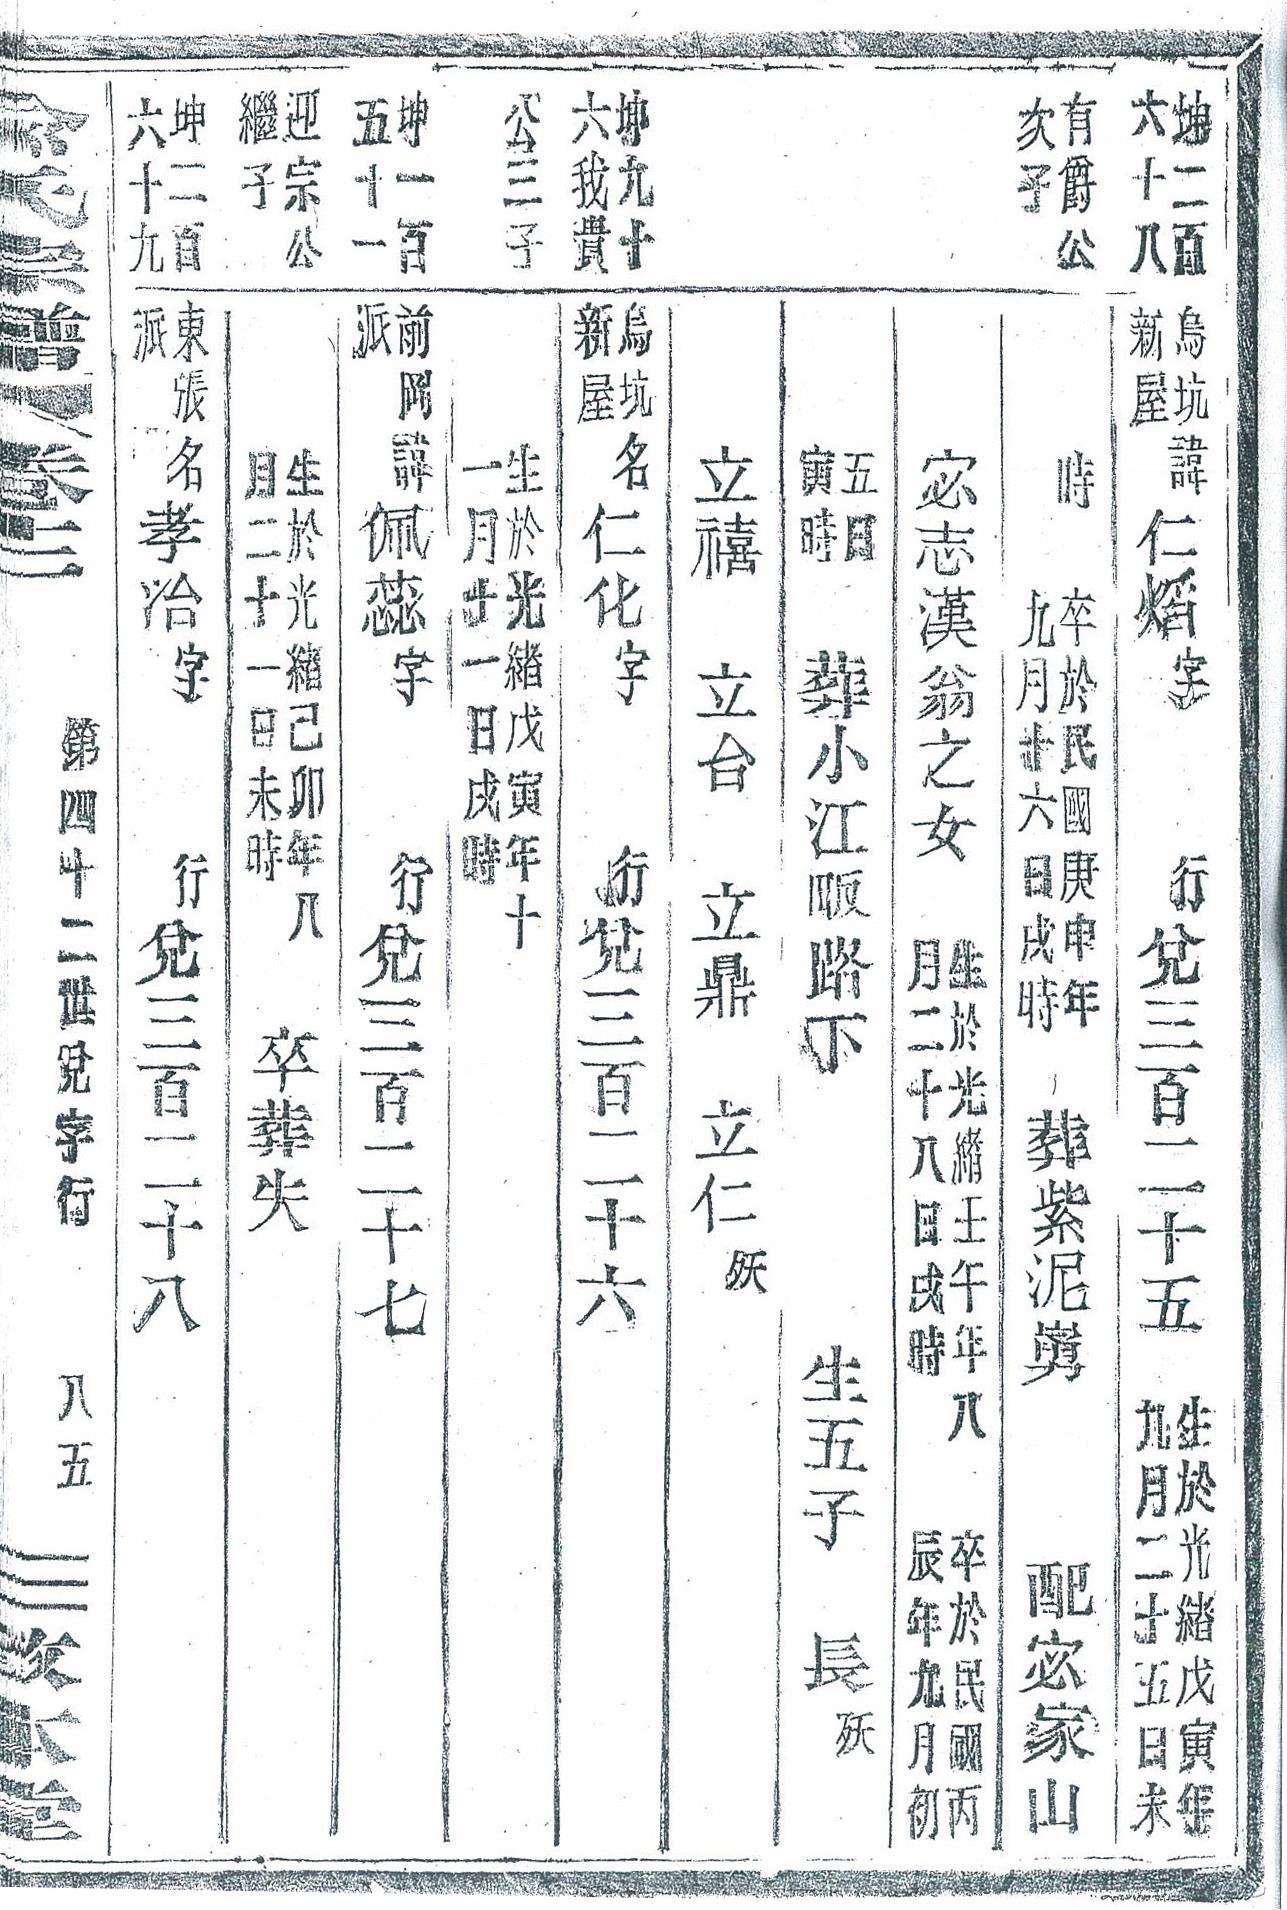 坤二百六十八 烏坑新屋 諱仁焰字 行兌三百二十五 生於光緒戊寅年九月二十五日未
有爵公次子 時 卒於民國庚申年九月廿六日戌時 葬紫泥嶴 配宓家山
宓志漢翁之女 生於光緒壬午年八月二十八日戌時 卒於民國丙辰年九月初
五日寅時 葬小江畈路下 生五子 長殀
立禧 立台 立鼎 立仁殀
坤九十六我貴 烏坑新屋 名仁化字 行兌三百二十六
公三子 生於光緒戊寅年十一月廿一日戌時
坤一百五十一 前岡派 諱佩蕊字 行兌三百二十七
迎宗公繼子 生於光緒己卯年八月二十一日未時 卒葬失
坤二百六十九 東張派 名孝冶字 行兌三百二十八
氏宗譜 卷三 第四十二世兌字行 八五 敦本堂